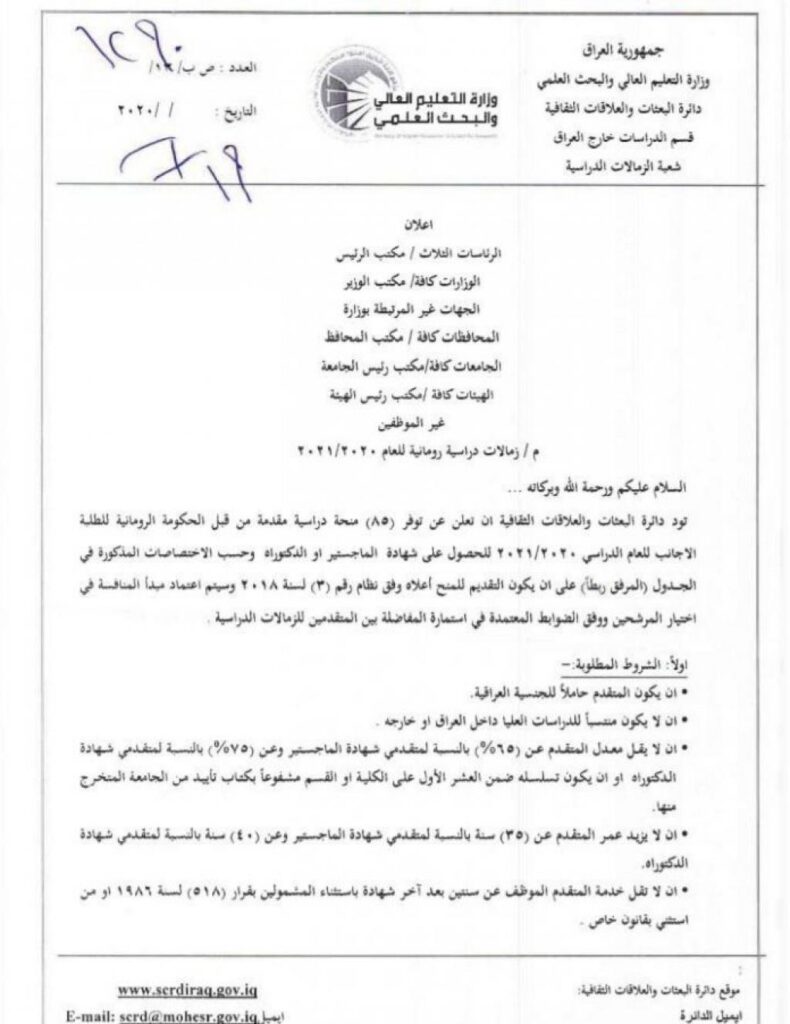 جمهورية العراق
وزارة التعليم العالي والبحث العلمي
دائرة البعثات والعلاقات الثقافية
قسم الدراسات خارج العراق
شعبة الزمالات الدراسية
وزارة التعليم العالي
والبحث العلمي
العدد : ص ب/ ١٢/
التاريخ : / / ٢٠٢٠
اعلان
الرئاسات الثلاث / مكتب الرئيس
الوزارات كافة/ مكتب الوزير
الجهات غير المرتبطة بوزارة
المحافظات كافة / مكتب المحافظ
الجامعات كافة/مكتب رئيس الجامعة
الهيئات كافة /مكتب رئيس الهيئة
غير الموظفين
م / زمالات دراسية رومانية للعام ٢٠٢١/٢٠٢٠
السلام عليكم ورحمة الله وبركاته ...
تود دائرة البعثات والعلاقات الثقافية ان تعلن عن توفر (٨٥) منحة دراسية مقدمة من قبل الحكومة الرومانية للطلبة
الاجانب للعام الدراسي ٢٠٢١/٢٠٢٠ للحصول على شهادة الماجستير او الدكتوراه وحسب الاختصاصات المذكورة في
الجدول (المرفق ربطاً) على ان يكون التقديم للمنح أعلاه وفق نظام رقم (٣) لسنة ٢٠١٨ وسيتم اعتماد مبدأ المنافسة في
اختيار المرشحين ووفق الضوابط المعتمدة في استمارة المفاضلة بين المتقدمين للزمالات الدراسية .
اولاً: الشروط المطلوبة:–
• ان يكون المتقدم حاملاً للجنسية العراقية.
• ان لا يكون منتسباً للدراسات العليا داخل العراق او خارجه .
• ان لا يقل معدل المتقدم عن (٦٥%) بالنسبة لمتقدمي شهادة الماجستير وعن (٧٥%) بالنسبة لمتقدمي شهادة
الدكتوراه او ان يكون تسلسله ضمن العشر الأول على الكلية او القسم مشفوعاً بكتاب تأييد من الجامعة المتخرج
منها.
• ان لا يزيد عمر المتقدم عن (٣٥) سنة بالنسبة لمتقدمي شهادة الماجستير وعن (٤٠) سنة بالنسبة لمتقدمي شهادة
الدكتوراه.
• ان لا تقل خدمة المتقدم الموظف عن سنتين بعد آخر شهادة باستثناء المشمولين بقرار (٥١٨) لسنة ١٩٨٦ او من
استثني بقانون خاص .
موقع دائرة البعثات والعلاقات الثقافية: www.scrdiraq.gov.iq
ايميل الدائرة ايميل E-mail: scrd@mohesr.gov.iq